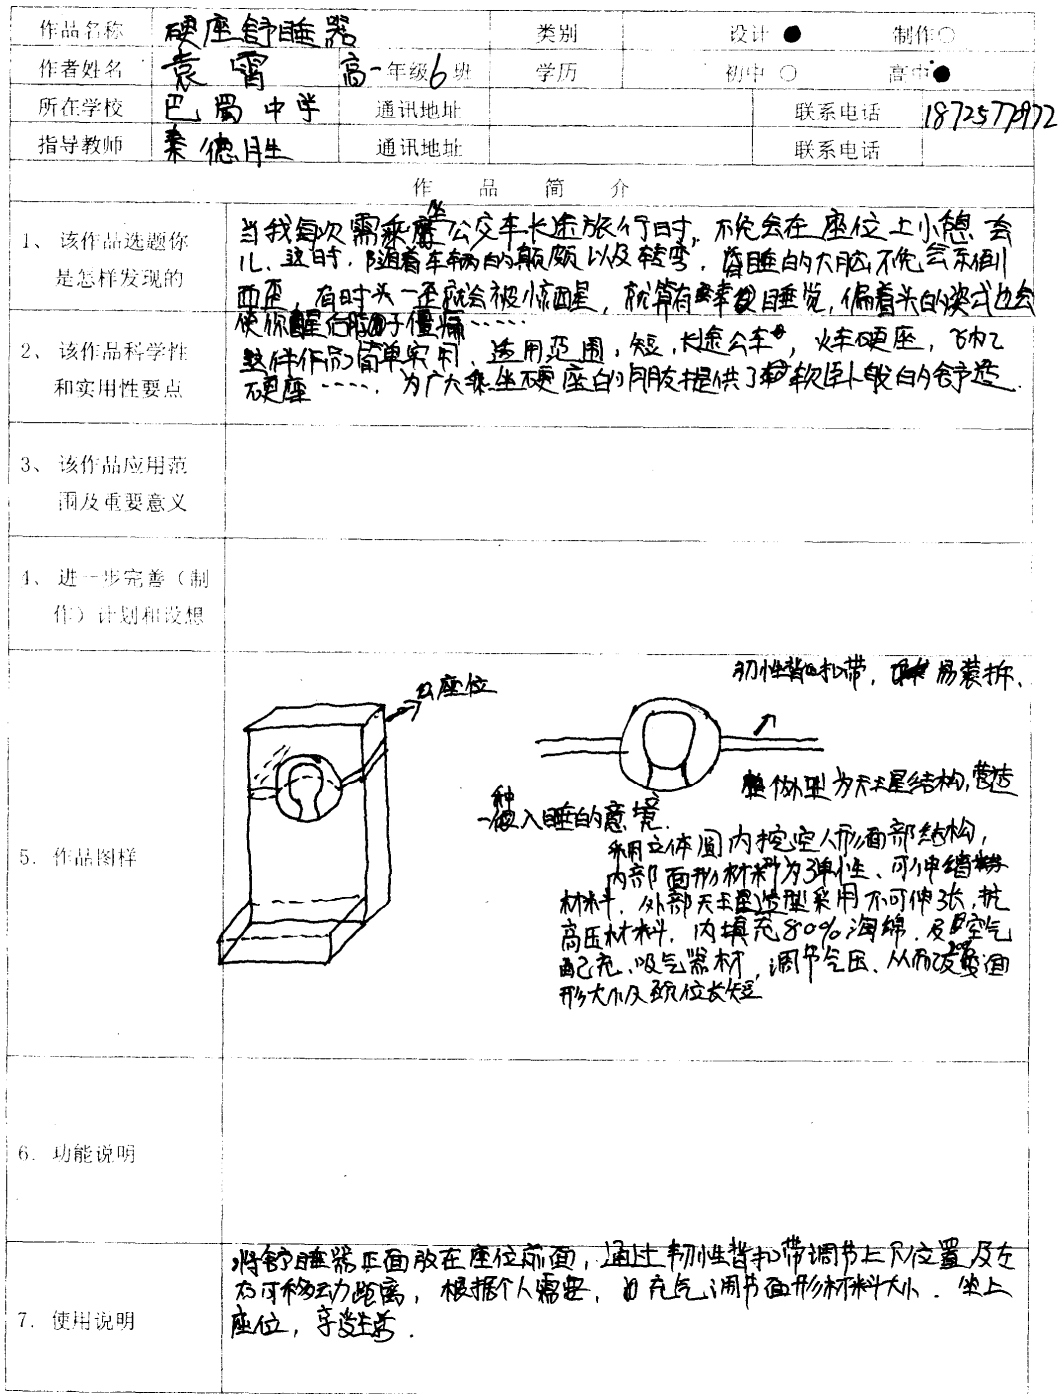 作品名称 硬座舒睡器 类别 设计 ● 制作○
作者姓名 袁霄 高一年级6班 学历 初中 ○ 高中●
所在学校 巴蜀中学 通讯地址 联系电话
指导教师 秦德胜 通讯地址 联系电话
作品简介
1、该作品选题你是怎样发现的
当我每次需乘坐公交车长途旅行时，不免会在座位上小憩会
儿．这时，随着车辆的颠颇以及转弯，昏睡的大脑不免会东倒
西歪，有时头一歪就会被惊醒，就算有幸睡觉，偏着头的姿式也会
使你醒后脖子僵痛……
2、该作品科学性和实用性要点
这件作品简单实用，适用范围，短，长途公车，火车硬座，飞机
硬座……为广大乘坐硬座的朋友提供了软卧般的舒适．
3、该作品应用范围及重要意义
4、进一步完善（制作）计划和设想
5. 作品图样
座位
韧性背扣带，易装拆．
整体外型为天王星结构，营造
一种入睡的意境．
采用立体圆内挖空人形面部结构，
内部面形材料为弹性、可伸缩
材料．外部天王星造型采用不可伸张，抗
高压材料．内填充80%海绵．及空气
配充、吸气器材，调节气压、从而改变面
形大小及颈位长短
6. 功能说明
7. 使用说明
将舒睡器正面放在座位前面，通过韧性背扣带调节上下位置及左
右可移动距离，根据个人需要，充气调节面形材料大小．坐上
座位，享受生活．